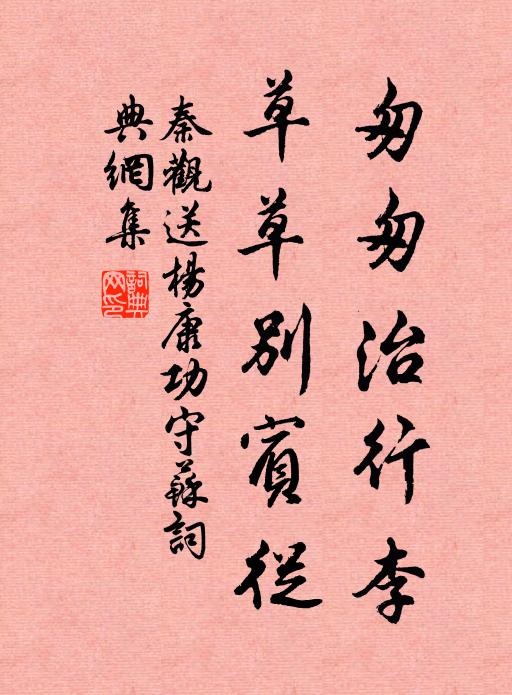 匆匆治行李
草草别賓從
秦觀送楊康功守蘇詞
典網集
詞典網印